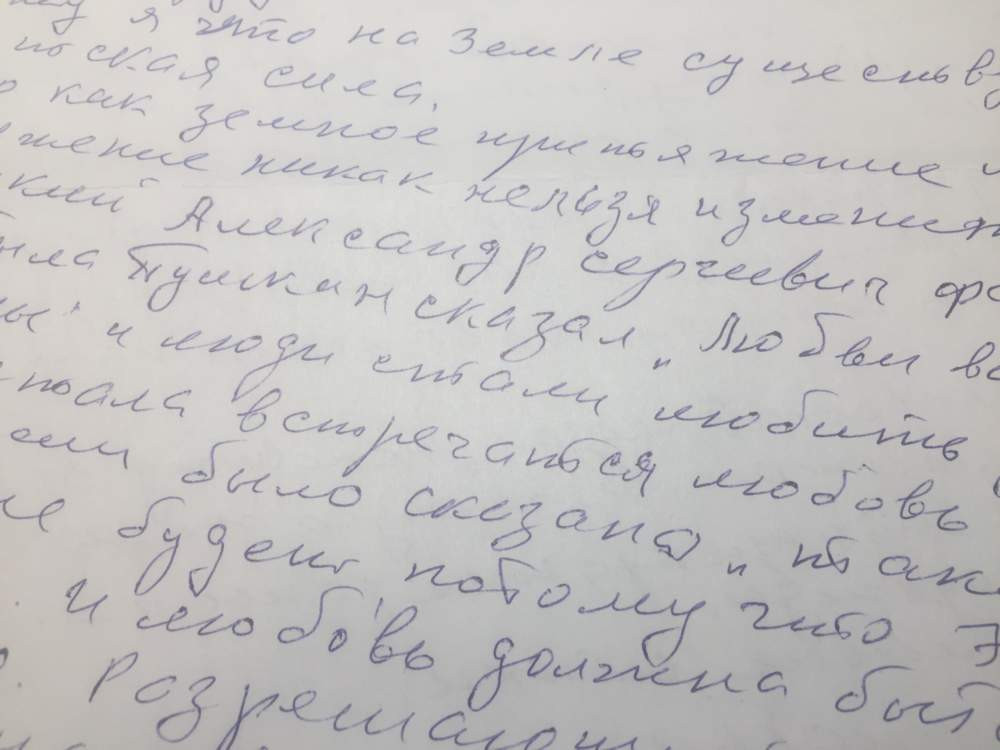 я что на Земле существу
ская сила.
как земное притяжение
жение никак нельзя изменить
кий Александр сергиевич
ыла Пушкин сказал „ Любви
ны и люди стали любить
тала встречаться любовь
ем было сказано „ так
не будет, потому что
и любовь должна быт
Разрешаю